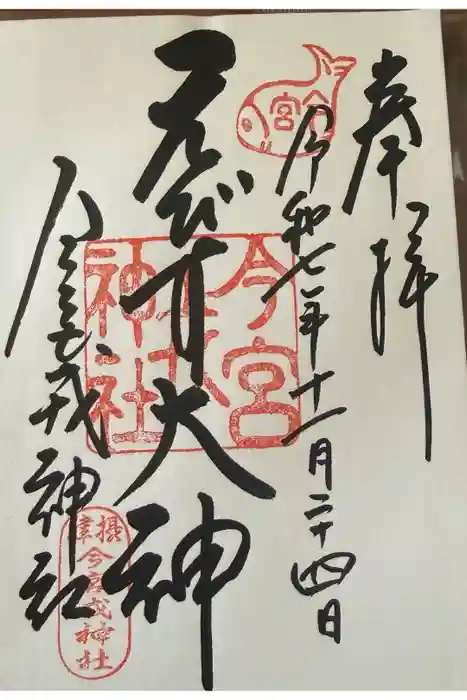 奉拝
今宮
令和七年十一月二十四日
ゑびす大神
今宮戎神社
今宮戎神社
摂津
今宮戎神社